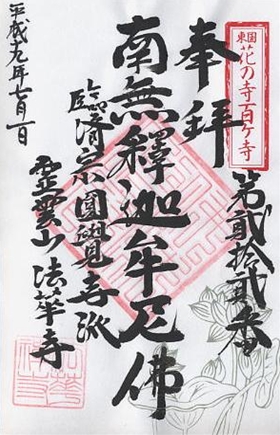 東国
花の寺百ヶ寺
第貳拾貳番
奉拝
南無釋迦牟尼佛
臨済宗圓覺寺派
霊雲山 法華寺
平成十九年七月一日